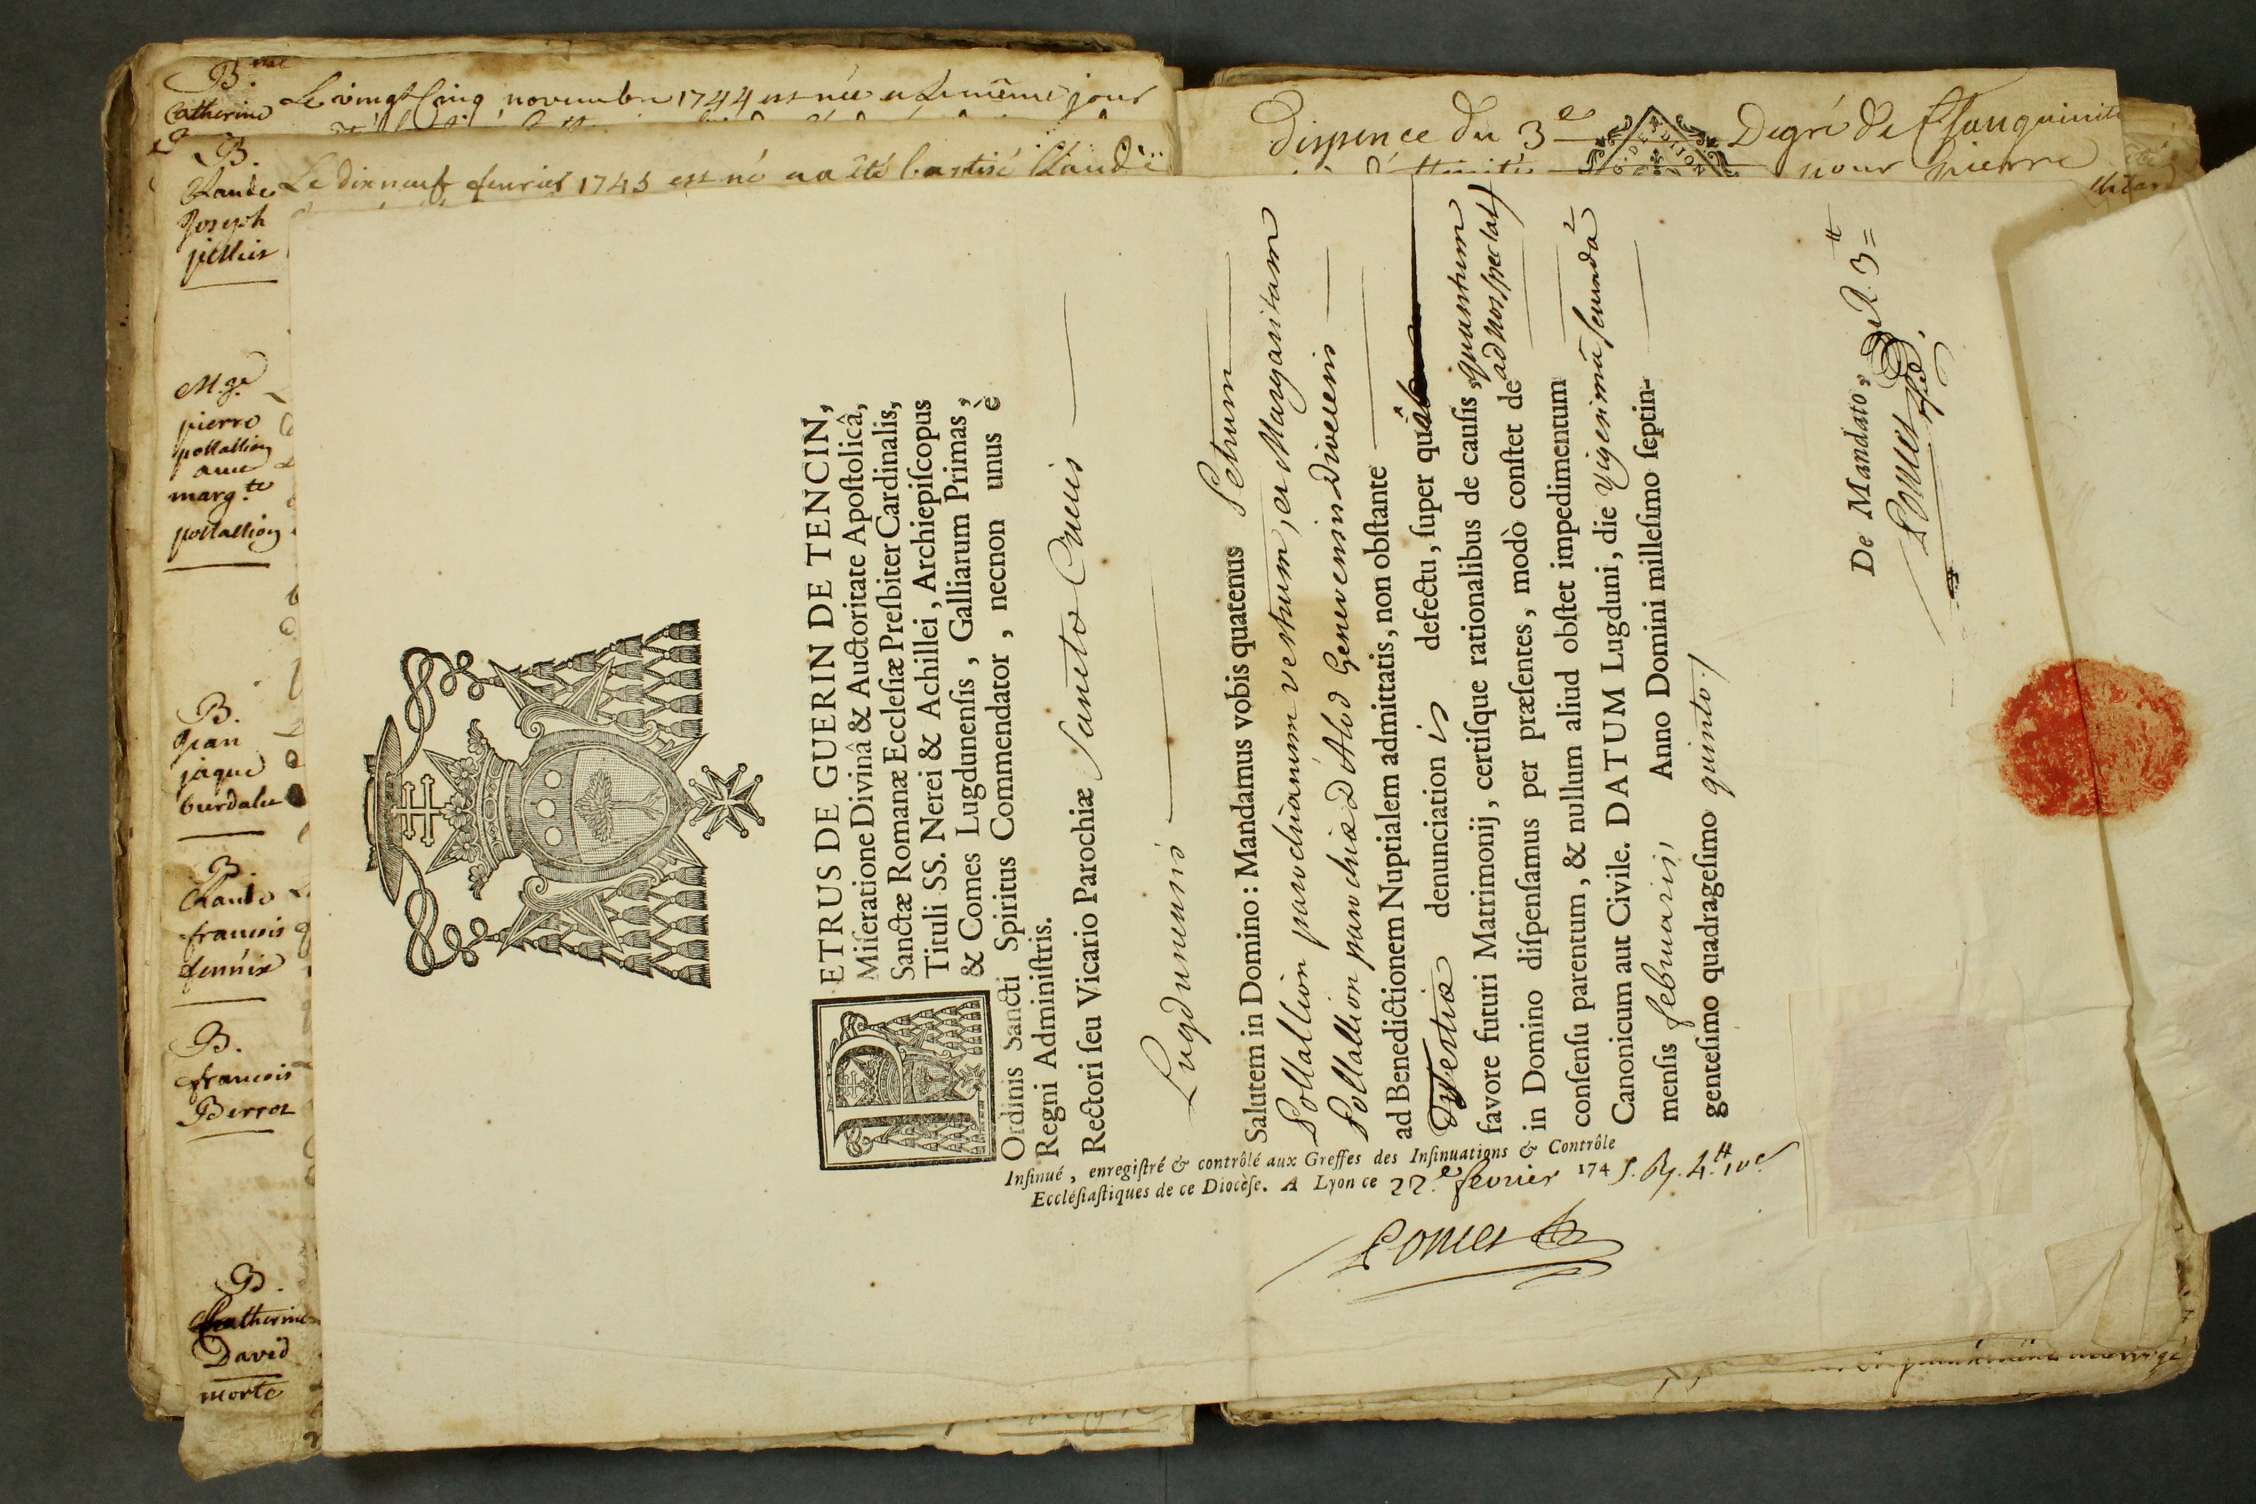 B.
Catherine
Le vingt Cinq novembre 1744 est née et le même jour
B.
Claude
Joseph
Le dixneuf fevrier 1745 est né et a été batisé Claude
M.ge
pierre
pollallion
avec
marg.te
pollallion
B.
Jean
jaque
burdalet
B.
Claude
francois
B.
francois
Berroz
B.
Catherine
David
morte
Dispence du 3e Degré de Consanguinité
pour pierre
PETRUS DE GUERIN DE TENCIN,
Miseratione Divinâ & Auctoritate Apostolicâ,
Sanctæ Romanæ Ecclesiæ Presbiter Cardinalis,
Tituli SS. Nerei & Achillei, Archiepiscopus
& Comes Lugdunensis, Galliarum Primas,
Ordinis Sancti Spiritus Commendator, necnon unus è
Regni Administris.
Rectori seu Vicario Parochiæ Sanctæ Crucis
Lugdunensis
Salutem in Domino: Mandamus vobis quatenus Petrum
Pollallion parochianum vestrum, et Margaritam
Pollallion parochiæ D'Alod Genevensis Diœcesis
ad Benedictionem Nuptialem admittatis, non obstante
Tertiæ denunciationis defectu, super quâ
favore futuri Matrimonij, certisque rationalibus de causis, quantum
ad nos spectat)
in Domino dispensamus per præsentes, modò constet de
consensu parentum, & nullum aliud obstet impedimentum
Canonicum aut Civile. DATUM Lugduni, die Vigesimâ secundâ
mensis februarii Anno Domini millesimo septin-
gentesimo quadragesimo quinto./
De Mandato,
R. 3tt
Insinué, enregistré & contrôlé aux Greffes des Insinuations & Contrôle
Ecclésiastiques de ce Diocèse. A Lyon ce 22.e fevrier 1745.